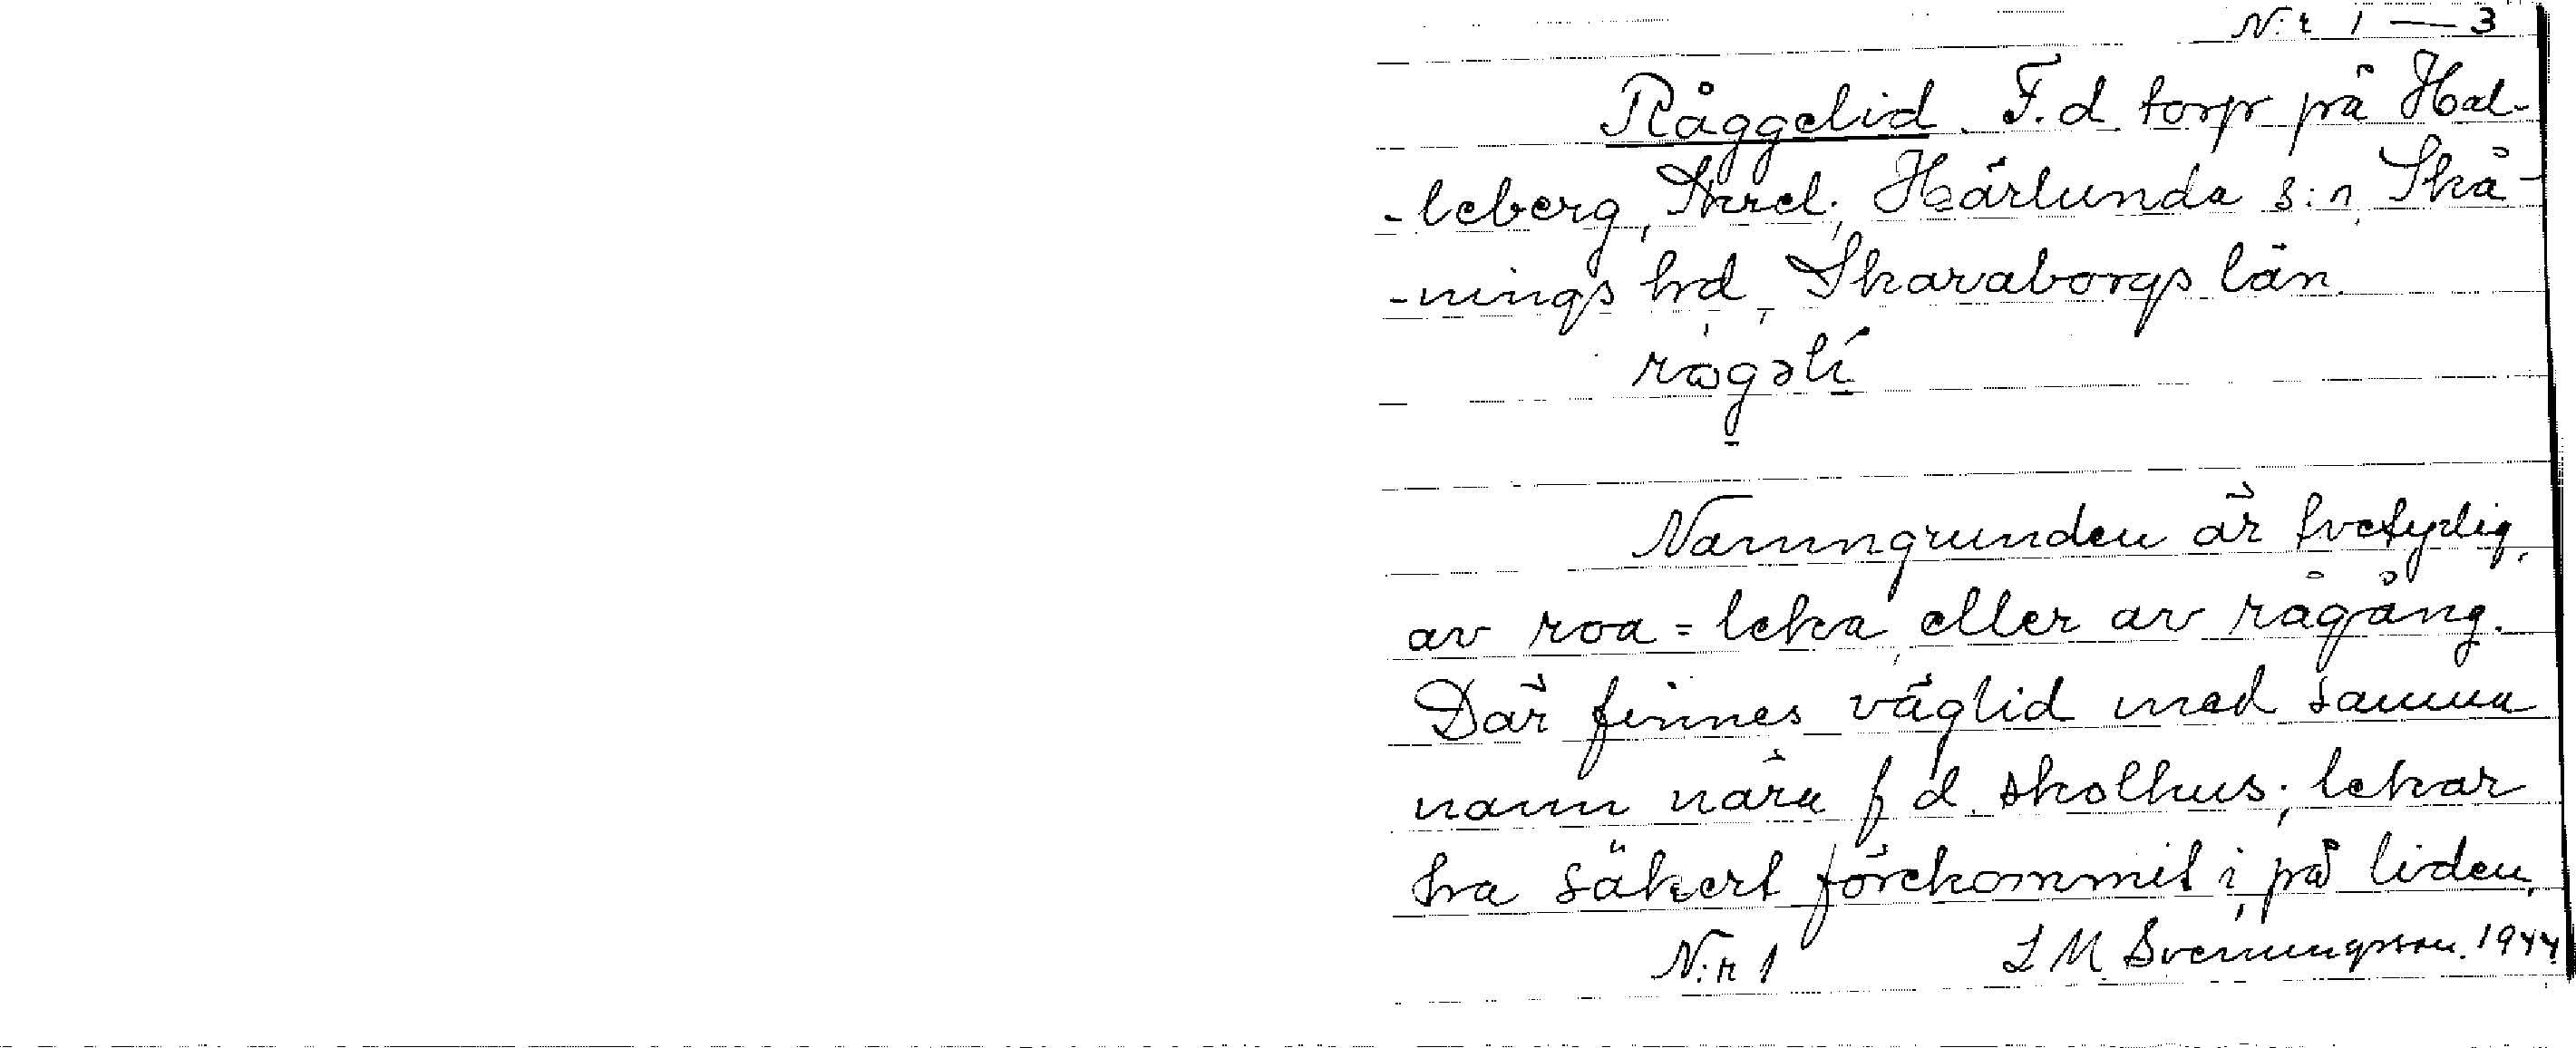 N:r 1 — 3
Råggelid. F.d. torp på Hal-
-leberg, Härlunda s:n, Skå-
-nings hd, Skaraborgs län.
rågəlí
Namngrunden är tvetydig,
av roa = leka, eller av rågång.
Där finnes väglid med samma
namn nära f.d. skolhus; lekar
ha säkert förekommit i, på liden.
N:r 1 L M Svenungsson. 1944